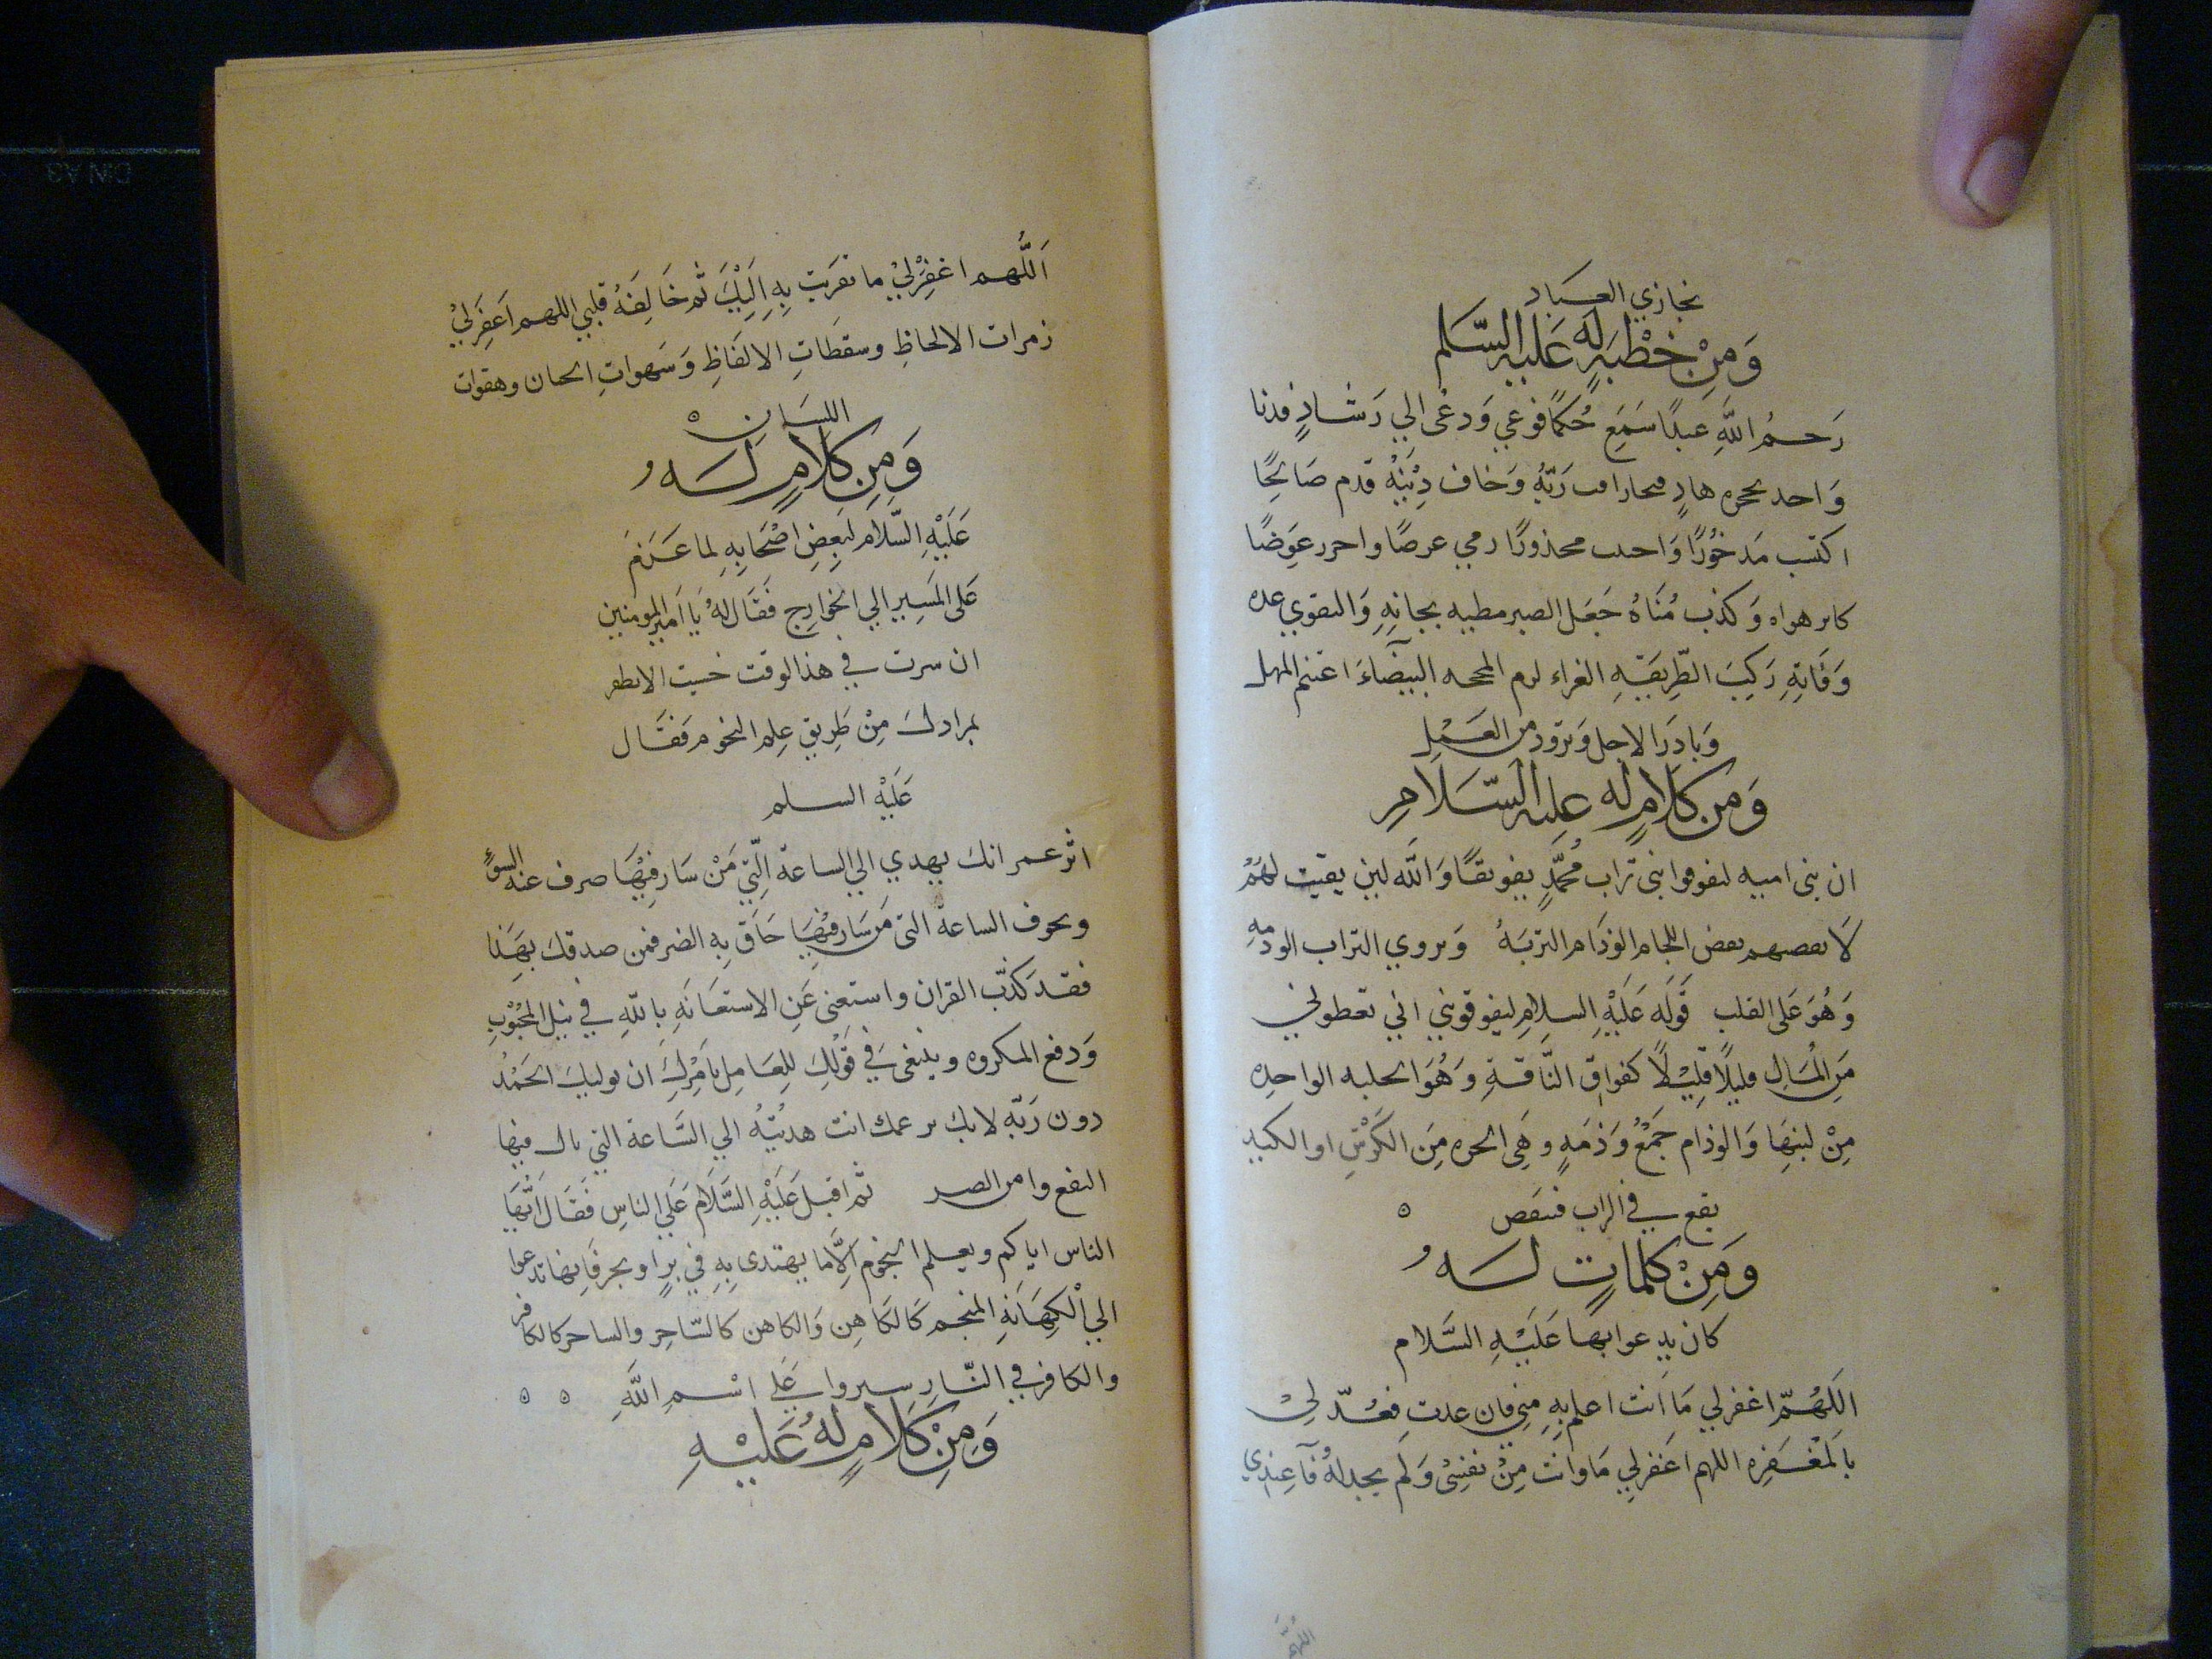 نجازي العباد
وَمِنْ خُطْبَةٍ لَه عَلَيْه السَّلم
رَحمُ اللَّهِ عبدًا سَمَعَ حُكمًا فوعي وَدعى الي رَشادٍ فدنا
وَاحد بحجره هادٍ فنجا راقب رَبّهُ وَخاف ذنبَهُ قدم صَالحًا
اكتسب مَدخُورًا وَاجتنب محذورًا رمي عرضًا واحرر عوَضًا
كابر هواه وَكذب مُنَاهُ جَعَل الصبر مطيه نجاتِهِ وَالتقوي عده
وَفَاتِهِ رَكِبَ الطّرِيقَهِ الغراء لزم المحجه البَيضَاءَ اغتنم المهل
وَبادِرَ الاجل وَتزود من العَمَلِ
وَمن كلامٍ له عليه السَّلامِ
ان بنى اميه ليفوقوا بنى تراب مُحمَّدٍ تفويقًا وَاللَّه لين بقيت لهُمْ
لَا نفضنهم نفض اللجام الوذَام التربَهُ وَيروي التراب الوذمهِ
وَهُوَ عَلى القلب قَولَه عَلَيْهِ السلامِ ليفوقوني اني تعطوني
مَن المَالِ قليلًا قَلِيْلًا كفواقِ النَّاقةِ وَهُوَ الحلبه الواحِده
مِنْ لبنهَا وَالوذام جَمْعُ وَذمَهٍ وهَي الحزه مِنَ الكَرْشِ او الكبد
يقع في التراب فتنفض ه
وَمَنْ كلماتٍ لَهُ
كان يدعوا بهَا عَلَيْهِ السَّلام
اللَهُمّ اغفرلي مَا انت اعلم بِهِ مني فان عدت فعُدّ لي
بالمَغْفِره اللهم اغفرلي مَا وايت مِنْ نفسي وَلَم يجد لهُ وفآ عِندي
اللهم
اَللَّهم اغفِرْلي ما تقربت بِهِ اِلَيْكَ ثم خَالفَهُ قلبي اللهم اغفرلي
زمرات الالحاظِ وسقطَاتِ الالفَاظِ وَسَهواتِ الحنان وهفوات
اللِسَان ه
وَمِن كلامٍ لَهُ
عَلَيْهِ السَّلام لبعض اصْحَابِهِ لما عَزَمَ
عَلى المَسِير الي الخوارج فقَال لهُ يَا اَمير المومنين
ان سرت في هذا الوقت خشيت الا تظفر
بمرادك مِنْ طَرِيق عِلم النجوم فقَال
عَلَيْهِ السلم
اتزعم انك يهدي الي الساعة اِلّتي مَنْ سَار فِيْهَا صرف عنه السوٍء
وتخوف الساعة التى مَن سَار فِيْهَا حَاق بِهِ الضر فمن صدقك بهَذا
فقد كذّب القران واستغنى عَنِ الاستعَانَهِ باللّهِ في نيل المحْبُوْبِ
وَدفع المكروه وينبغى في قَولكِ للعَامِل بَأمرِكَ ان يوليك الحَمْدُ
دون رَبّهِ لانك بزعمك انت هديْتُهُ الي السَّاعة التي نال فيها
النفع وامن الضر ثم اقبل عَلَيْهِ السَّلَام عَلَي الناسِ فَقَال اَيُّهَا
الناس اياكم وتعلم النجُوم اِلَّا ما يهتدى بِهِ في برٍ او بحر فَانها تدعوا
الي الكهَانَةِ المنجم كَالكَاهِن وَالكاهن كالسَّاحِر والساحر كالكافر
والكافر في النَّارِ سيروا عَلَي اسْمِ اللَّهِ ه ه
وَمِنْ كَلَامٍ لهُ عَلَيْهِ